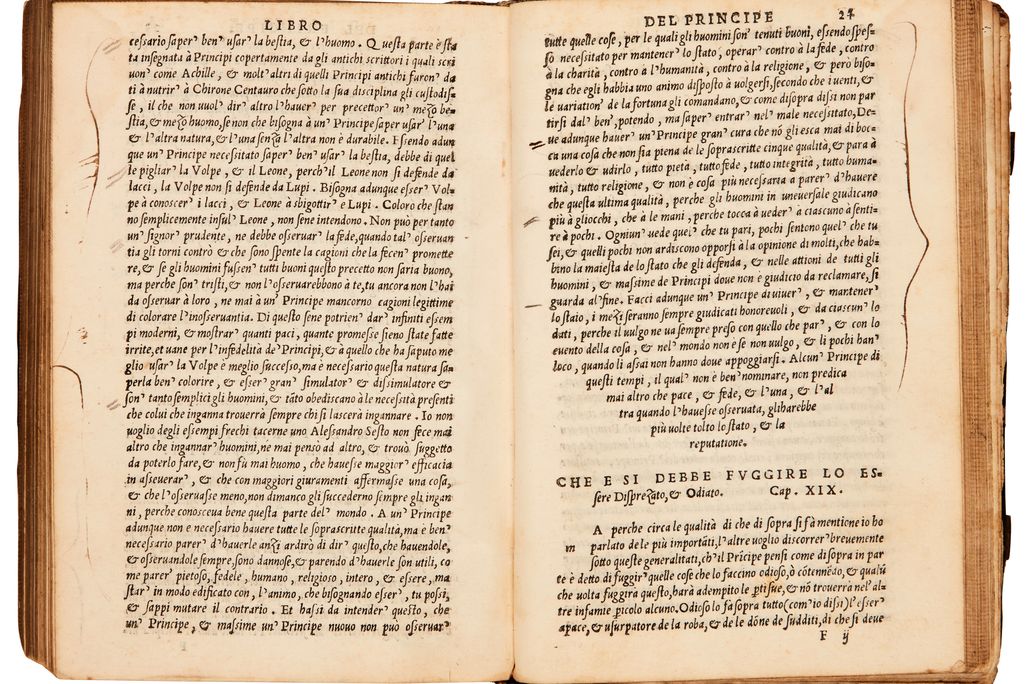 LIBRO
cessario saper' ben' usar' la bestia, & l'huomo. Questa parte è sta
ta insegnata à Principi copertamente da gli antichi scrittori i quali scri
uon' come Achille, & molt'altri di quelli Principi antichi furon' da
ti à nutrir' à Chirone Centauro che sotto la sua disciplina gli custodis=
se, il che non uuol' dir' altro l'hauer' per precettor' un' mezo be=
stia, & mezo huomo, se non che bisogna à un' Principe saper usar' l'una
& l'altra natura, & l'una senza l'altra non è durabile. Essendo adun
que un' Principe necessitato saper' ben' usar' la bestia, debbe di quel
le pigliar' la Volpe, & il Leone, perch'il Leone non si defende da
lacci, la Volpe non si defende da Lupi. Bisogna adunque esser' Vol=
pe à conoscer' i lacci, & Leone à sbigottir' e Lupi. Coloro che stan
no semplicemente insul' Leone, non sene intendono. Non può per tanto
un' signor' prudente, ne debbe osseruar' la fede, quando tal' osseruan
tia gli torni contrò & che sono spente la cagioni che la fecen' promette
re, & se gli huomini fussen' tutti buoni questo precetto non saria buono,
ma perche son' tristi, & non l'osseruarebbono à te, tu ancora non l'hai
da osseruar à loro, ne mai à un' Principe mancorno cagioni legittime
di colorare l'inosseruantia. Di questo sene potrien' dar' infiniti essem
pi moderni, & mostrar' quanti paci, quante promesse sieno state fatte
irrite, et uane per l'infedelità de' Principi, & à quello che ha saputo me
glio usar' la Volpe è meglio successo, ma è necessario questa natura sa=
perla ben' colorire, & esser' gran' simulator' & dissimulatore &
son' tanto semplici gli huomini, & tāto obediscano à le necessità presenti
che colui che inganna trouerrà sempre chi si lascerà ingannare. Io non
uoglio degli essempi freschi tacerne uno Alessandro Sesto non fece mai
altro che ingannar' huomini, ne mai pensò ad altro, & trouò suggetto
da poterlo fare, & non fù mai huomo, che hauesse maggior' efficacia
in asseuerar', & che con maggiori giuramenti affermasse una cosa,
& che l'osseruasse meno, non dimanco gli succederno sempre gli ingan
ni, perche conosceua bene questa parte del' mondo. A un' Principe
adunque non e necessario hauere tutte le soprascritte qualità, ma è ben'
necessario parer' d'hauerle anzi ardirò di dir' questo, che hauendole,
& osseruandole sempre, sono dannose, & parendo d'hauerle son utili, co
me parer' pietoso, fedele, humano, religioso, intero, & essere, ma
star' in modo edificato con, l'animo, che bisognando esser', tu possi,
& sappi mutare il contrario. Et hassi da intender' questo, che
un' Principe, & massime un' Principe nuouo non può osseruar'
DEL PRINCIPE 24
tutte quelle cose, per le quali gli huomini son' tenuti buoni, essendo spes=
sò necessitato per mantener' lo stato, operar' contro à la fede, contro
à la charità, contro à l'humanità, contro à la religione, & però biso=
gna che egli habbia uno animo disposto à uolgersi, secondo che i uenti, &
le uariation' de la fortuna gli comandano, & come disopra dissi non par
tirsi dal' ben', potendo, ma saper' entrar' nel' male necessitato, De=
ue adunque hauer' un' Principe gran' cura che nō gli esca mai di boc=
ca una cosa che non sia piena de le soprascritte cinque qualità, & para à
uederlo & udirlo, tutto pietà, tutto fede, tutto integrità, tutto huma=
nità, tutto religione, & non è cosa più necessaria a parer' d'hauere
che questa ultima qualità, perche gli huomini in uneuersale giudicano
più à gliocchi, che à le mani, perche tocca à ueder' a ciascuno à senti=
re à pochi. Ogniun' uede quel' che tu pari, pochi sentono quel' che tu
sei, & quelli pochi non ardiscono opporsi à la opinione di molti, che hab=
bino la maiesta de lo stato che gli defenda, & nelle attioni de tutti gli
huomini, & massime de Principi doue non è giudicio da reclamare, si
guarda al' fine. Facci adunque un' Principe di uiuer', & mantener'
lo stato, i mezi seranno sempre giudicati honoreuoli, & da ciascun' lo
dati, perche il uulgo ne ua sempre preso con quello che par', & con lo
euento della cosa, & nel' mondo non è se non uulgo, & li pochi han'
loco, quando li assai non hanno doue appoggiarsi. Alcun' Principe di
questi tempi, il qual' non è ben' nominare, non predica
mai altro che pace, & fede, & l'una, & l'al
tra quando l'hauesse osseruata, gliharebbe
più uolte tolto lo stato, & la
reputatione.
CHE E SI DEBBE FVGGIRE LO ES=
sere Disprezato, & Odiato. Cap. XIX.
A perche circa le qualità di che di sopra si fà mentione io ho
m parlato de le più importāti, l'altre uoglio discorrer' breuemente
sotto queste generalitati, ch'il Prīcipe pensi come disopra in par
te è detto di fuggir' quelle cose che lo faccino odioso, ò cōtennēdo, & qualū
che uolta fuggirà questo, harà adempito le ptisue, & nō trouerrà nel' al=
tre infamie picolo alcuno. Odioso lo fa sopra tutto (com'io dissi) l'esser'
apace, & usurpatore de la roba, & de le dōne de sudditi, di che si deue
F ij